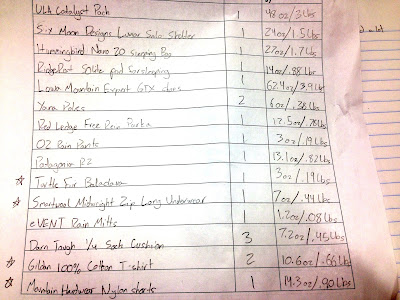 ULA Catalyst Pack 1 48oz/3lbs
Six Moon Designs Lunar Solo Shelter 1 24oz/1.5lbs
Hummingbird Nano 20 Sleeping Bag 1 27oz/1.7lbs
RidgeRest Solite pad for sleeping 1 14oz/.88lbs
Lowa Mountain Expert GTX shoes 1 62.4oz/3.9lbs
Yana Poles 2 6oz/.38lbs
Red Ledge Free Rain Parka 1 12.5oz/.78lbs
O2 Rain Pants 1 3oz/.19lbs
Patagonia R2 1 13.1oz/.82lbs
☆ Turtle Fur Balaclava 1 3oz/.19lbs
☆ Smartwool Midweight Zip Long Underwear 1 7oz/.44lbs
eVENT Rain Mitts 1 1.2oz/.08lbs
Darn Tough Vt Sock Cushion 3 7.2oz/.45lbs
☆ Gildan 100% Cotton T-shirt 2 10.6oz/.66lbs
☆ Mountain Hardwear Nylon shorts 1 14.3oz/.90lbs